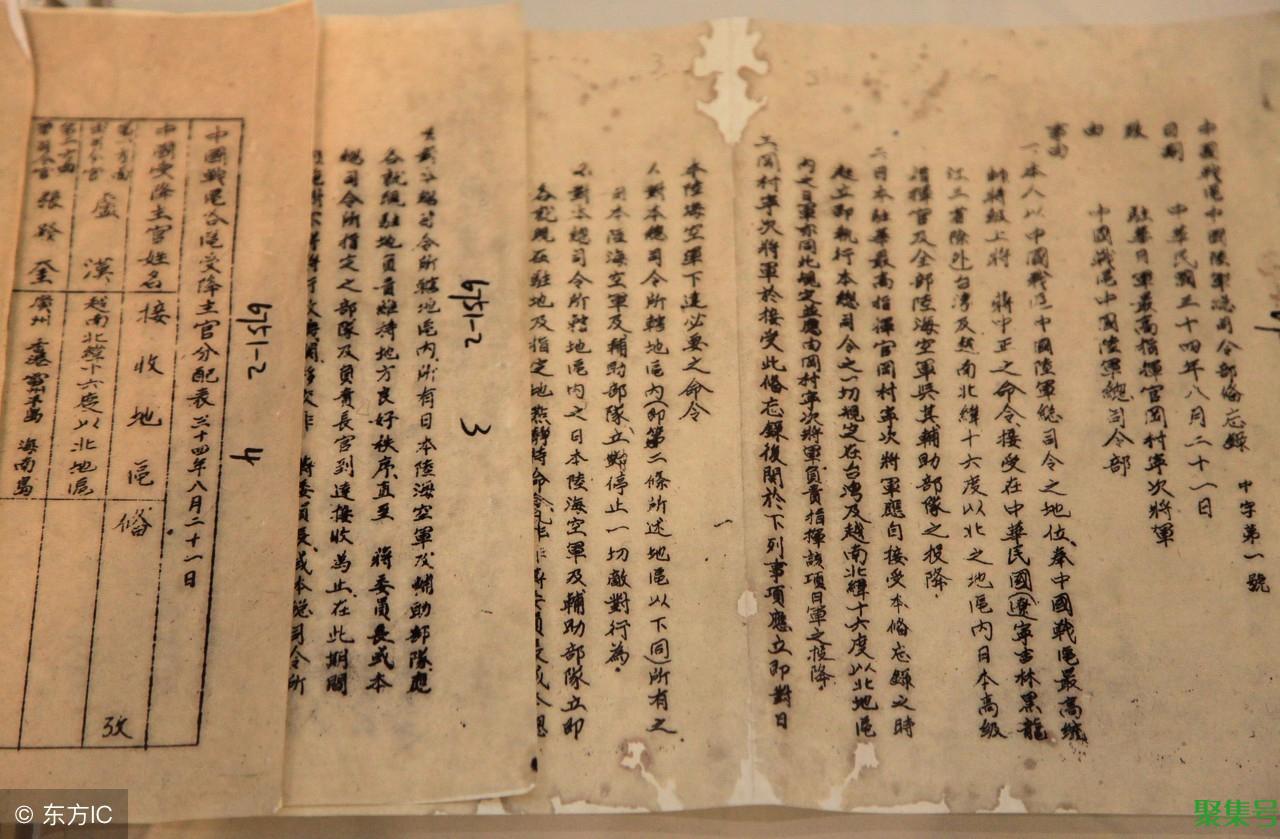 中國戰區中國陸軍總司令部備忘錄 中字第一號
日期 中華民國三十四年八月二十一日
致 駐華日軍最高指揮官岡村寧次將軍
由 中國戰區中國陸軍總司令部
事由
一、本人以中國戰區中國陸軍總司令之地位、奉中國戰區最高統
帥特級上將 蔣中正之命令、接受在中華民國(遼寧吉林黑龍
江三省除外)台灣及越南北緯十六度以北之地區內日本高級
指揮官及全部陸海空軍與其輔助部隊之投降.
二、日本駐華最高指揮官岡村寧次將軍應自接受本備忘錄之時
起立即執行本總司令之一切規定在台灣及越南北緯十六度以北地區
內之日軍亦同此規定並應由岡村寧次將軍負責指揮該項日軍之投降.
三、岡村寧次將軍於接受此備忘錄後關於下列事項應立即對日
本陸海空軍下達必要之命令
人對本總司令所轄地區內(即第二條所述地區以下同)所有之
日本陸海空軍及輔助部隊立即停止一切敵對行為.
2.對本總司令所轄地區內之日本陸海空軍及輔助部隊立即
各就現在駐地及指定地點靜待命令
6751-2 3
總司令所轄地區內所有日本陸海空軍及輔助部隊應
各就現駐地負責維持地方良好秩序、直至 蔣委員長或本
總司令所指定之部隊及負責長官到達接收為止、在此期間
蔣委員長或本總司令所
6751-2 4
中國戰區各區受降主官分配表 三十四年八月二十一日
中國受降主官姓名 接收地區 備攷
第一方面
司令官 盧漢 越南北緯十六度以北地區
第二方面
軍司令官 張發奎 廣州 香港 雷州半島 海南島
© 东方IC
聚集号